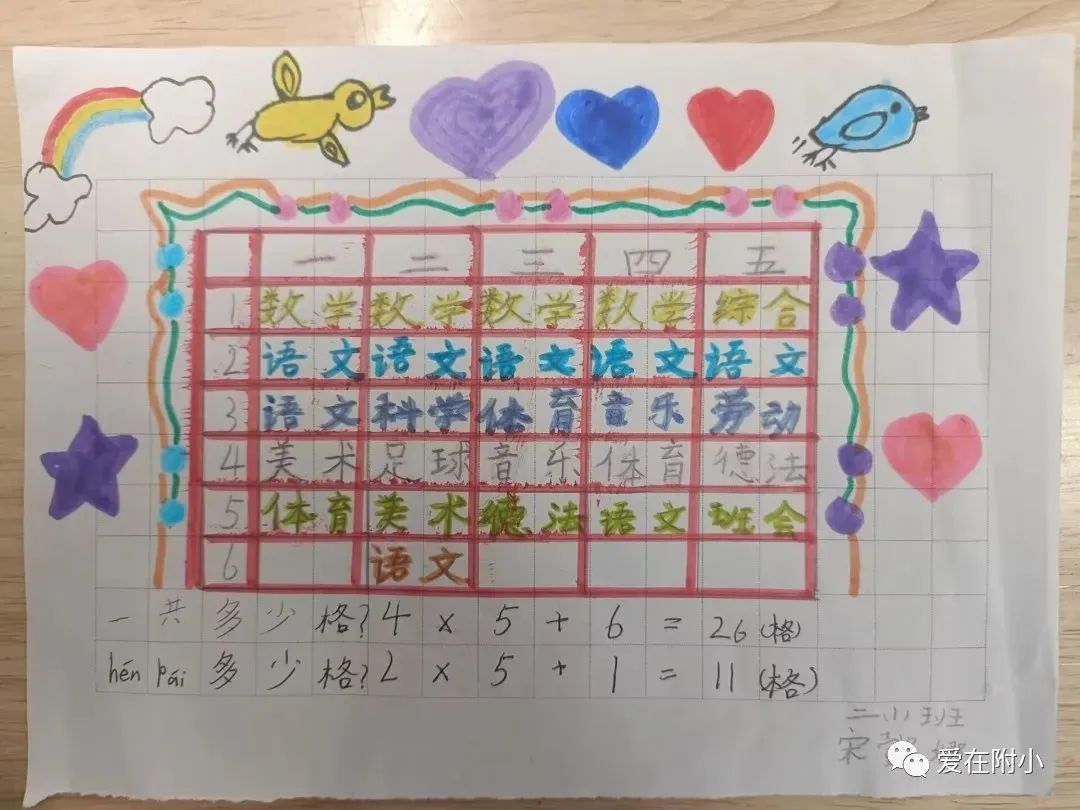 一 二 三 四 五
1 数学 数学 数学 数学 综合
2 语文 语文 语文 语文 语文
3 语文 科学 体育 音乐 劳动
4 美术 足球 音乐 体育 德法
5 体育 美术 德法 语文 班会
6 语文
一共多少格?4×5+6=26(格)
hén pái多少格?2×5+1=11(格)
班
宋
爱在附小